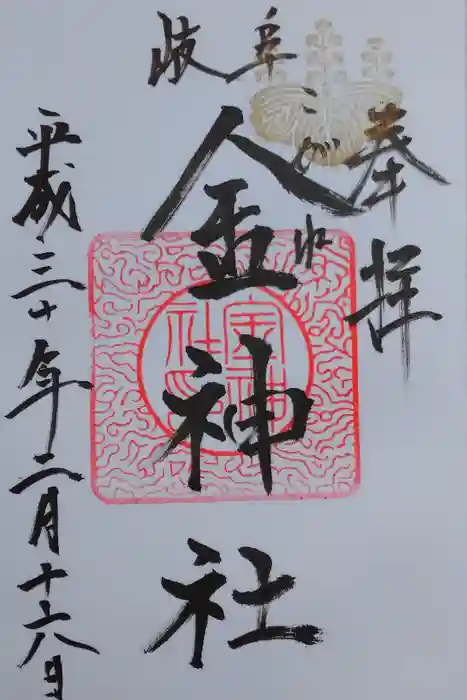 奉拝
岐阜
こがね
金神社
金神
社印
平成三十年二月十六日